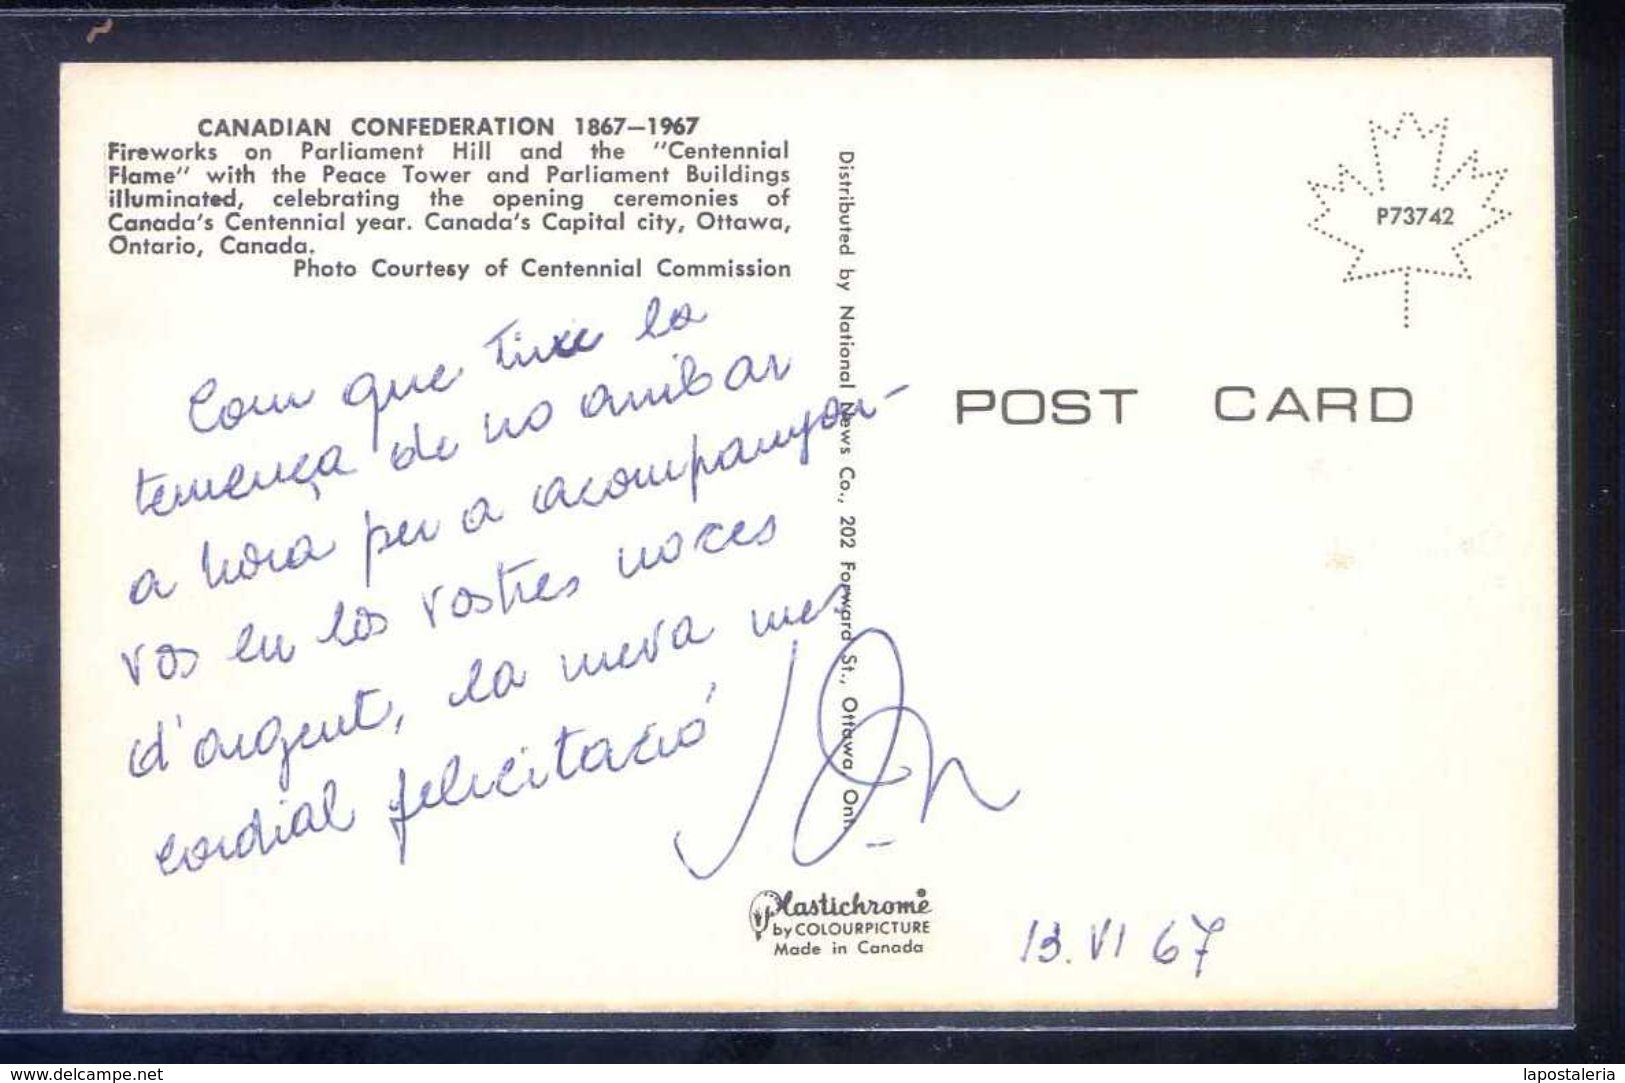 CANADIAN CONFEDERATION 1867—1967
Fireworks on Parliament Hill and the "Centennial
Flame" with the Peace Tower and Parliament Buildings
illuminated, celebrating the opening ceremonies of
Canada's Centennial year. Canada's Capital city, Ottawa,
Ontario, Canada.
Photo Courtesy of Centennial Commission
Com que tixc la
temença de no arribar
a hora per a acompanyar-
vos en les vostres noces
d'argent, la meva mes
cordial felicitació
Distributed by National News Co., 202 Forward St., Ottawa Ont.
P73742
POST CARD
Plastichrome
by COLOURPICTURE
Made in Canada
13. VI 67
www.delcampe.net
lapostaleria